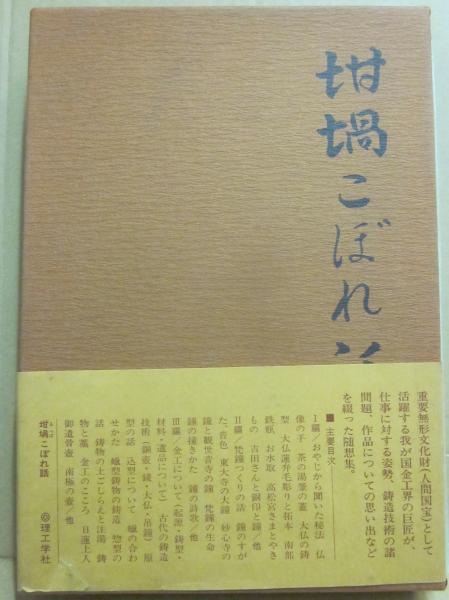 坩堝こぼれ話
重要無形文化財(人間国宝)として
活躍する我が国金工界の巨匠が、
仕事に対する姿勢、鋳造技術の諸
問題、作品についての思い出など
を綴った随想集。
■主要目次
Ⅰ編/おやじから聞いた秘法 仏
像の干 茶の湯釜の蓋 大仏の鋳
型 大仏蓮弁毛彫りと拓本 南部
鉄瓶 お水取 高松宮さまとやき
もの 吉田さんと銅印と鐘/他
Ⅱ編 梵鐘つくりの話 鐘のすが
た、音色 東大寺の大鐘 妙心寺の
鐘と観世音寺の鐘 梵鐘の生命
鐘の撞きかた 鐘の詩歌/他
Ⅲ編 金工について(起源・鋳型・
材料・遺品について) 古代の鋳造
技術(銅壺・鏡・大仏・吊鐘) 原
型の話 込型について 蠟の合わ
せかた 蠟型鋳物の鋳造 惣型の
話 鋳物の土ごしらえと注湯 鋳
物と蠟 金工のこころ 日蓮上人
御遺骨壺 南極の壷/他
坩堝こぼれ話
るつぼ
◎理工学社